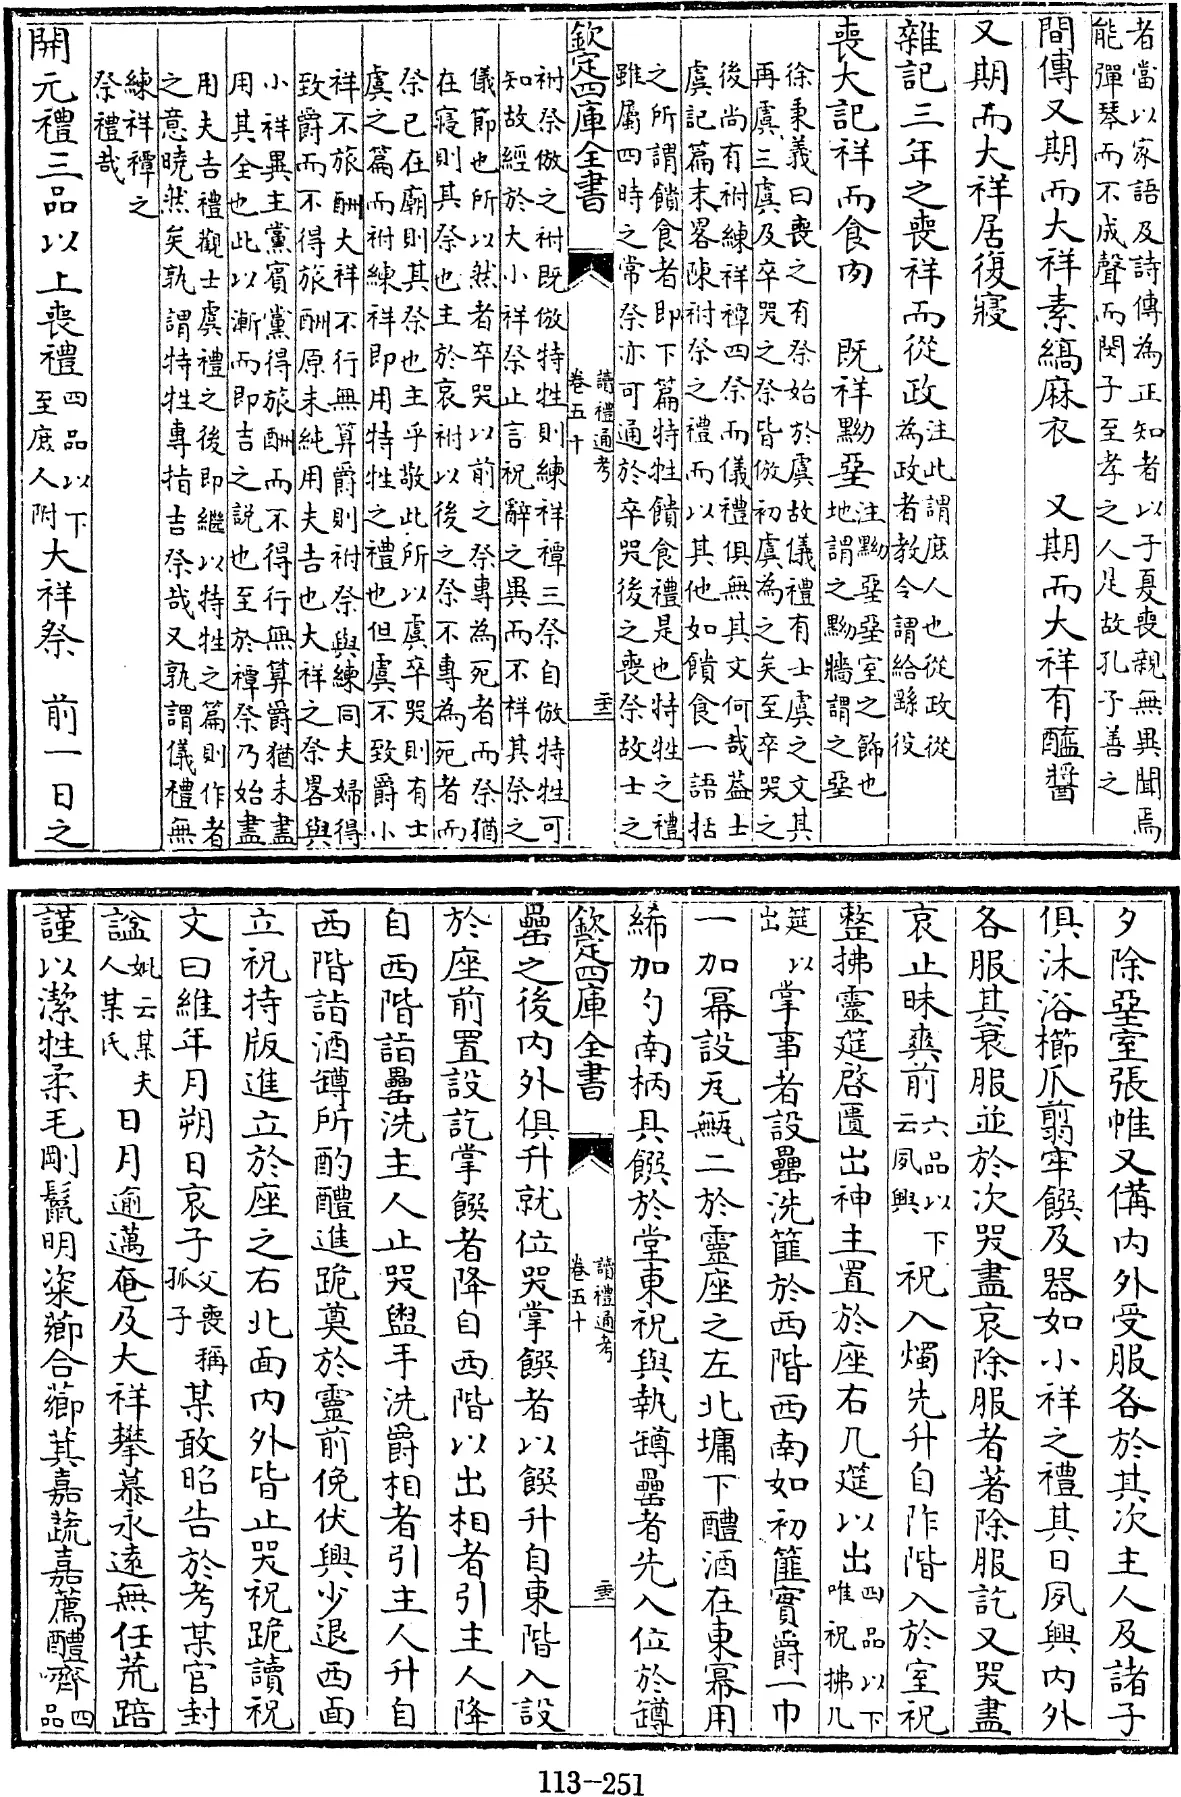 者當以家語及詩傳為正知者以子夏喪親無異聞焉
能彈琴而不成聲而閔子至孝之人足故孔子善之
間傳又期而大祥素縞麻衣　又期而大祥有醯醬
又期而大祥居復寢
雜記三年之喪祥而從政注此謂庶人也從政從
為政者教令謂給繇役
喪大記祥而食肉　既祥黝堊注黝堊堊室之飾也
地謂之黝牆謂之堊
徐秉義曰喪之有祭始於虞故儀禮有士虞之文其
再虞三虞及卒哭之祭皆倣初虞為之矣至卒哭之
後尚有祔練祥禫四祭而儀禮俱無其文何哉葢士
虞記篇末畧陳祔祭之禮而以其他如饋食一語括
之所謂饋食者即下篇特牲饋食禮是也特牲之禮
雖屬四時之常祭亦可通於卒哭後之喪祭故士之
欽定四庫全書
讀禮通考
卷五十
祔祭倣之祔既倣特牲則練祥禫三祭自倣特牲可
知故經於大小祥祭止言祝辭之異而不祥其祭之
儀節也所以然者卒哭以前之祭專為死者而祭猶
在寢則其祭也主於哀祔以後之祭不專為死者而
祭已在廟則其祭也主乎敬此所以虞卒哭則有士
虞之篇而祔練祥即用特牲之禮也但虞不致爵小
祥不旅酬大祥不行無算爵則祔祭與練同夫婦得
致爵而不得旅酬原未純用夫吉也大祥之祭畧與
小祥異主黨賓黨得旅酬而不得行無算爵猶未盡
用其全也此以漸而即吉之説也至於禫祭乃始盡
用夫吉禮觀士虞禮之後即繼以特牲之篇則作者
之意曉然矣孰謂特牲專指吉祭哉又孰謂儀禮無
練祥禫之
祭禮哉
開元禮三品以上喪禮四品以下
至庶人附大祥祭　前一日之
夕除堊室張帷又備內外受服各於其次主人及諸子
俱沐浴櫛爪翦牢饌及器如小祥之禮其日夙興內外
各服其衰服並於次哭盡哀除服者著除服訖又哭盡
哀止昧爽前六品以下
云夙興祝入燭先升自阼階入於室祝
整拂靈筵啓匱出神主置於座右几筵以出四品以下
唯祝拂几
筵以
出掌事者設罍洗篚於西階西南如初篚實爵一巾
一加冪設瓦甒二於靈座之左北墉下醴酒在東冪用
絺加勺南柄具饌於堂東祝與執罇罍者先入位於罇
欽定四庫全書
讀禮通考
卷五十
罍之後內外俱升就位哭掌饌者以饌升自東階入設
於座前置設訖掌饌者降自西階以出相者引主人降
自西階詣罍洗主人止哭盥手洗爵相者引主人升自
西階詣酒罇所酌醴進跪奠於靈前俛伏興少退西面
立祝持版進立於座之右北面內外皆止哭祝跪讀祝
文曰維年月朔日哀子父喪稱
孤子某敢昭告於考某官封
諡妣云某夫
人某氏日月逾邁奄及大祥攀慕永遠無任荒踣
謹以潔牲柔毛剛鬛明粢薌合薌萁嘉蔬嘉薦醴齊四
品
113-251